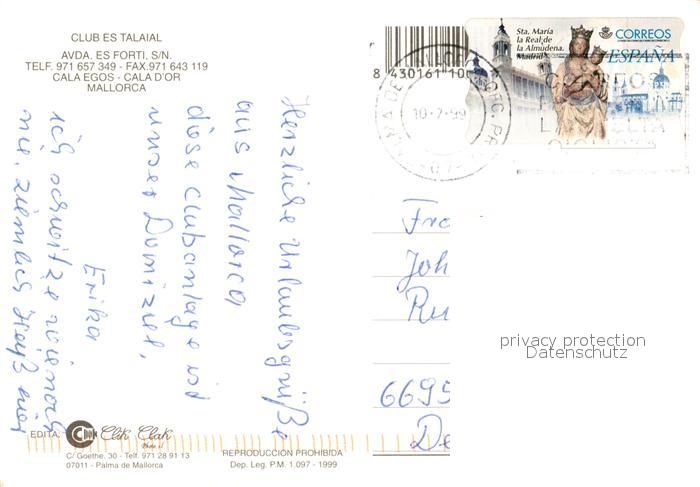 CLUB ES TALAIAL
AVDA. ES FORTI, S/N.
TELF. 971 657 349 - FAX.971 643 119
CALA EGOS - CALA D'OR
MALLORCA
8 430161 10
Sta. María
la Real de
la Almudena.
Madrid
CORREOS
ESPAÑA
10-7-99
CORREOS
Herzliche Urlaubsgrüße
aus Mallorca
diese Clubanlage ist
unser Domizil,
Erika
ich schwitze
mir, ziemlich heiß hier
Fra
Joh
Ru
6695
De
privacy protection
Datenschutz
EDITA:
Clik Clak
C/ Goethe, 30 - Telf. 971 28 91 13
07011 - Palma de Mallorca
REPRODUCCIÓN PROHIBIDA
Dep. Leg. P.M. 1.097 - 1999